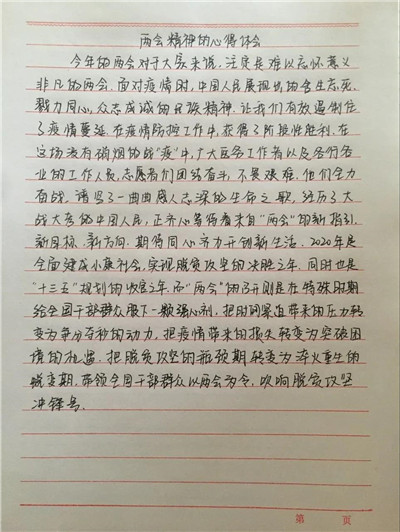 两会精神的心得体会
今年的两会对于大家来说，注定是难以忘怀意义
非凡的两会。面对疫情时，中国人民展现出的舍生忘死、
戮力同心、众志成城的民族精神，让我们有效遏制住
了疫情蔓延，在疫情防控工作中，获得了阶段性胜利。在
这场没有硝烟的战"疫"中，广大医务工作者以及各行各
业的工作人员、志愿者们团结奋斗，不畏艰难，他们全力
奋战。谱写了一曲曲感人至深的生命之歌。经历了大
战大考的中国人民，正齐心等待着来自"两会"的新指引、
新目标、新方向，期待同心齐力开创新生活。2020年是
全面建成小康社会，实现脱贫攻坚的决胜之年，同时也是
"十三五"规划的收官之年，而"两会"的召开则是在特殊时期
给全国干部群众服下一颗强心剂，把时间紧迫带来的压力转
变为争分夺秒的动力，把疫情带来的损失转变为突破困
境的机遇，把脱贫攻坚的瓶颈期转变为浴火重生的
蜕变期，带领全国干部群众以两会为令，吹响脱贫攻坚
冲锋号。
第 页